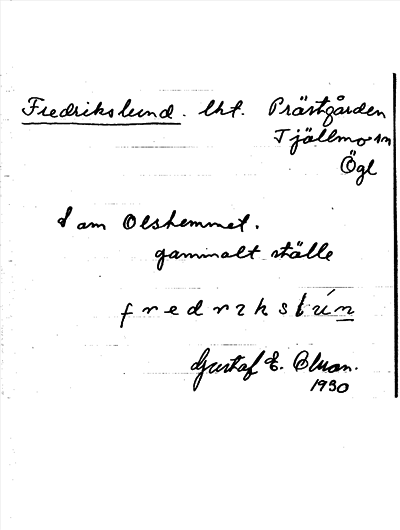 Fredrikslund. lht. Prästgården
Tjällmo sn
Ögl
d am Olshemmet.
gammalt ställe
fredrikslún
Gustaf E. Bluon.
1930